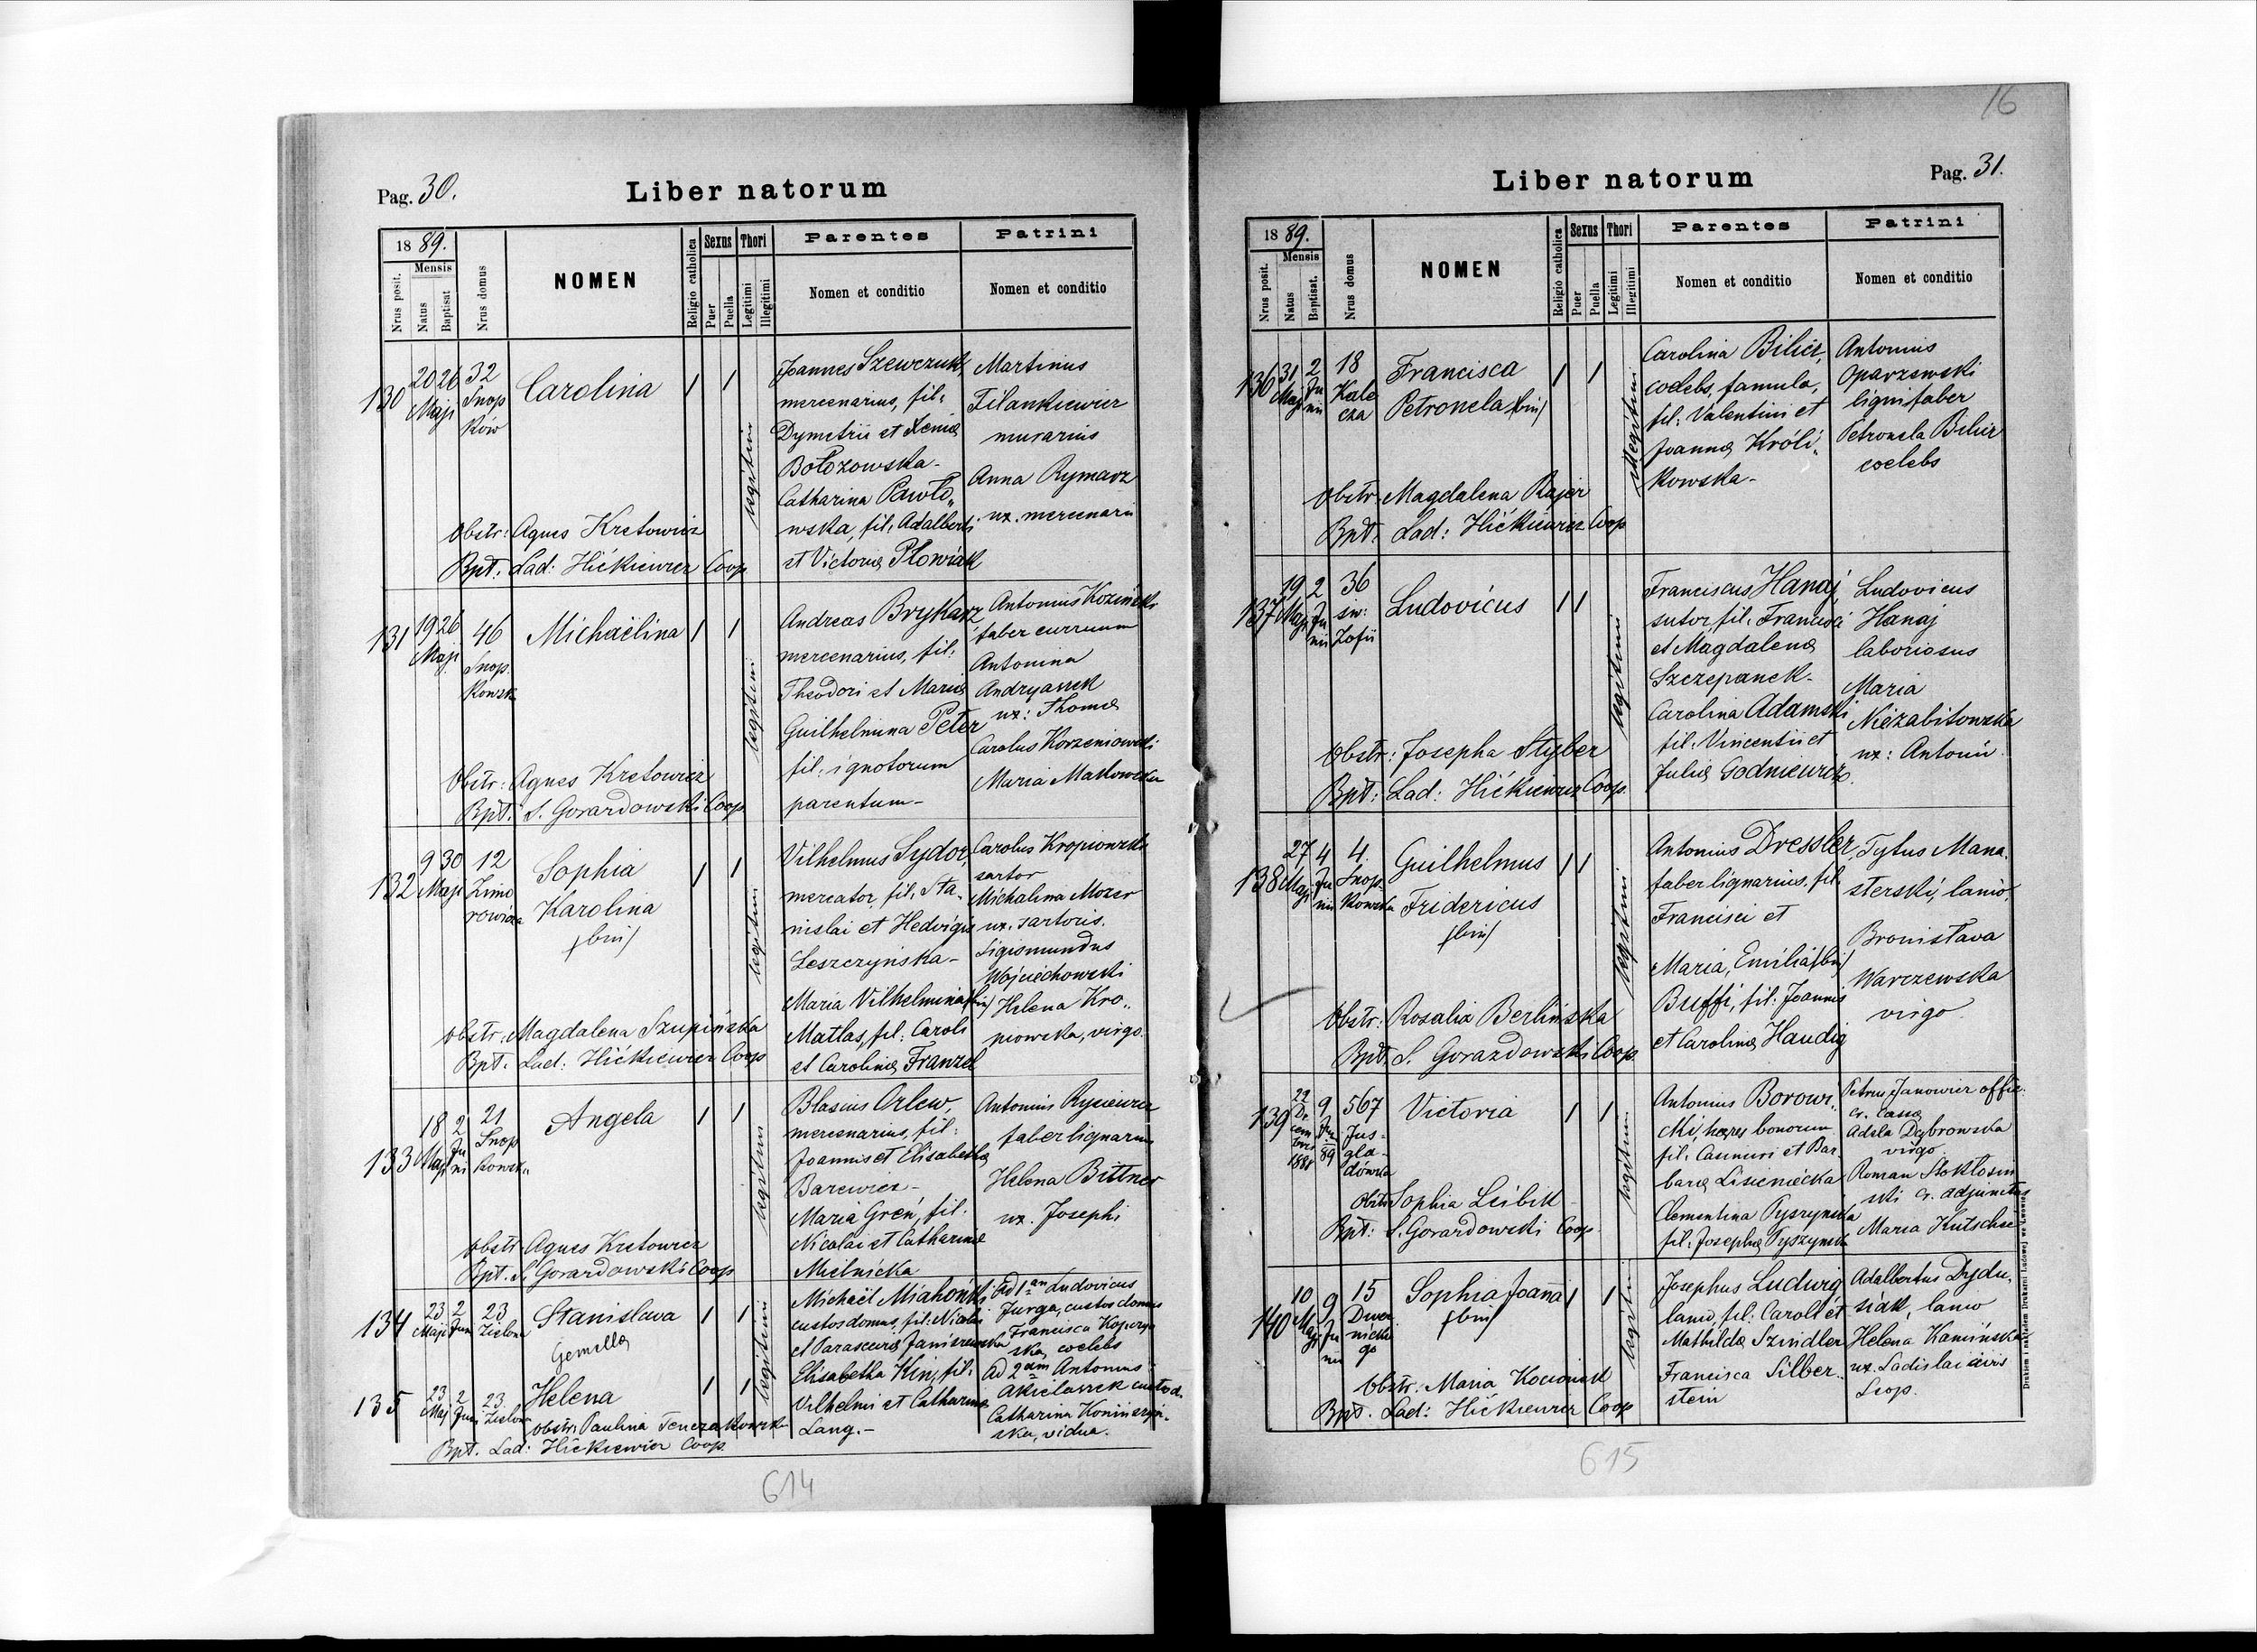 Pag. 30.
Liber natorum
18 89.
Mensis
Nrus posit.
Natus
Baptisat
Nrus domus
NOMEN
Religio catholica
Sexus
Puer
Puella
Thori
Legitimi
Illegitimi
Parentes
Nomen et conditio
Patrini
Nomen et conditio
130
20 26
Maji
32
Snop
ków
Carolina
legitimi
Joannes Szewczuk
mercenarius, fil:
Dymetrii et Xenia
Bołozowska-
Catharina Pawło„
wska, fil: Adalberti
et Victoria Płowiak
Martinus
Filankiewicz
murarius
Anna Rymarz
ux. mercenarii
Obstr: Agnes Kretowicz
Bpt: Lad: Hićkiewicz Coop
131
19 26
Maji
46
Snop.
kowsk
Michaëlina
legitimi
Andreas Brykarz
mercenarius, fil:
Theodori et Maria
Guilhelmina Peter
fil: ignotorum
parentum-
Antonius Koziński
faber curruum
Antonina
Andryassek
ux: Thoma
Carolus Korzeniowski
Maria Makowska
Obstr: Agnes Kretowicz
Bpt: S. Gorazdowski Coop.
132
9 30
Maji
12
Zimo
rowicza
Sophia
Karolina
(bin)
legitimi
Vilhelmus Sydor,
mercator, fil: Sta-
nislai et Hedvigis
Leszczyńska-
Maria Vilhelmina (bin)
Matlas, fil: Caroli
et Carolina Franzel
Carolus Kropiowski
sartor
Michalina Mozer
ux. sartoris.
Sigismundus
Wojciechowski
Helena Kro„
piowska, virgo.
Obstr: Magdalena Szupińska
Bpt. Lad: Hićkiewicz Coop
133
18 2
Maji Ju
ni
21
Snop
kowsk„
Angela
legitimi
Blasius Orlew,
mercenarius, fil:
Joannis et Elisabetha
Barewicz-
Maria Greń, fil.
Nicolai et Catharina
Mielnicka
Antonius Ryciewicz
faber lignarius
Helena Bittner
ux. Josephi
Obstr. Agnes Kretowicz
Bpt. S. Gorazdowski Coop
134
23 2
Maji Juni
23
Zielona
Stanislava
Gemella
legitimi
Michaël Miahoński
custos domus, fil: Nicolai
et Parasceva Janiszewska
Elisabetha Kin, fil:
Vilhelmi et Catharina
Lang.-
Ad 1am Ludovicus
Jurga, custos domus
Francisca Kopczyń
ska, coelebs
Ad 2am Antonius
Akielaszek custod.
Catharina Koniuszyń„
ska, vidua.
135
23 2
Maj Juni
23
Zielona
Helena
Obstr: Paulina Tenczakowska
Bpt. Lad: Hićkiewicz Coop.
614
16
Liber natorum
Pag. 31.
18 89.
Mensis
Nrus posit.
Natus
Baptisat.
Nrus domus
NOMEN
Religio catholica
Sexus
Puer
Puella
Thori
Legitimi
Illegitimi
Parentes
Nomen et conditio
Patrini
Nomen et conditio
136
31 2
Maji Ju
nii
18
Kale
cza
Francisca
Petronela (bin)
illegitimi
Carolina Bilicz,
coelebs, famula,
fil: Valentini et
Joanna Króli„
kowska-
Antonius
Oparzewski
ligni faber
Petronela Bilicz
coelebs
Obstr: Magdalena Rajer
Bpt: Lad: Hićkiewicz Coop
137
19 2
Maji Ju
nii
36
św:
Zofii
Ludovicus
legitimi
Franciscus Hanaj
sutor, fil: Francisci
et Magdalena
Szczepanek-
Carolina Adamski
fil: Vincentii et
Julia Godniewicz
Ludovicus
Hanaj
laboriosus
Maria
Niezabitowska
ux: Antonii
Obstr: Josepha Styber
Bpt: Lad: Hićkiewicz Coop.
138
27 4
Maji Ju
nii
4.
Snop-
kowska
Guilhelmus
Fridericus
(bin)
legitimi
Antonius Dressler,
faber lignarius, fil.
Francisci et
Maria, Emilia (bin)
Buffi, fil: Joannis
et Carolina Haudig
Tytus Mana„
sterski, lanio,
Bronisława
Warczewska
virgo.
Obstr: Rosalia Berlińska
Bpt. S. Gorazdowski Coop.
139
22
De
cem
bris
1888
9
Juni
89
567
Jus=
gla=
dówka
Victoria
legitimi
Antonius Borowi„
cki, haeres bonorum
fil: Casimiri et Bar„
bara Lisieniecka
Clementina Pyszyńska
fil: Josepha Pyszyńska
Petrus Janowicz offic.
cr. cassa
Adela Dąbrowska
virgo.
Roman Stokłosiń
ski cr. adjunctus
Maria Kutscher
Obstr: Sophia Leibik
Bpt: S. Gorazdowski Coop.
140
10 9
Maji Ju
nii
15
Dwer
nickie
go
Sophia Joanna
(bin)
legitimi
Josephus Ludwig
lanio, fil: Caroli et
Mathilda Szindler
Francisca Silber„
stein
Adalbertus Dydu„
siak, lanio
Helena Kamińska
ux. Ladislai civis
Leop.
Obstr. Maria Kocioniak
Bpt. Lad: Hićkiewicz Coop
Drukiem i nakładem Drukarni Ludowej we Lwowie.
615